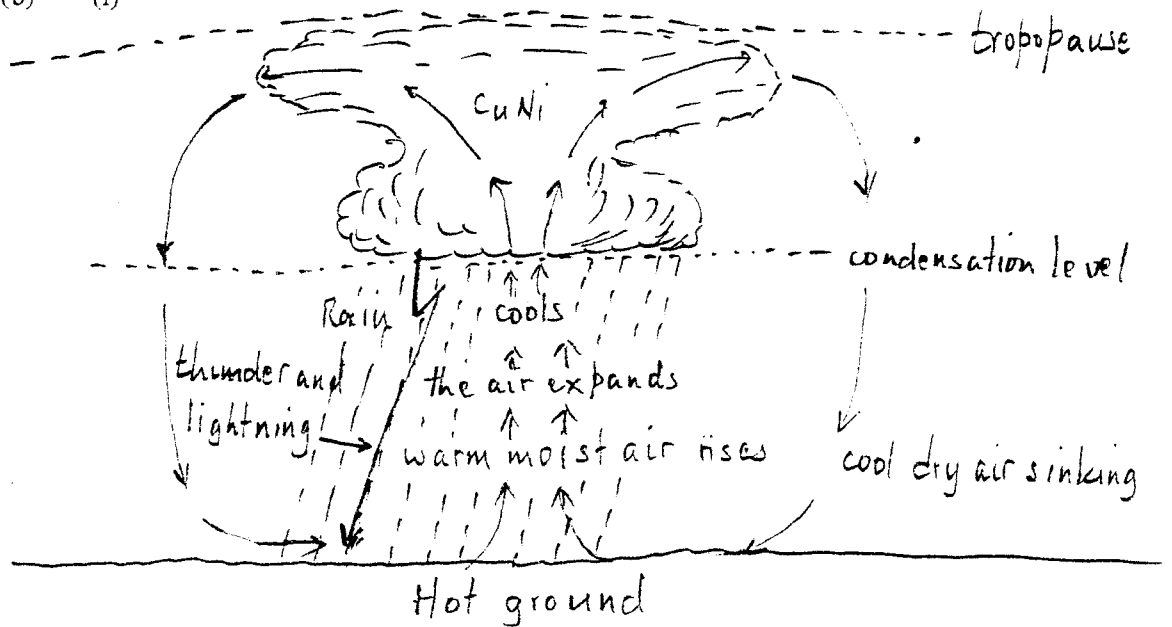 (b) (i)
tropopause
CuNi
condensation level
Rain
cools
thunder and
lightning
the air expands
warm moist air rises
cool dry air sinking
Hot ground